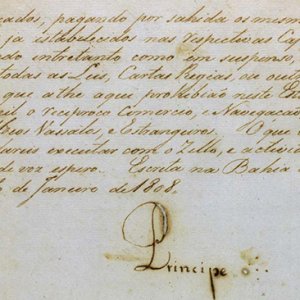 cados, pagando por sahida os mesmos
ja estabelecidos nas respectivas Cap
ndo entretanto como em suspenso,
todas as Leis, Cartas Regias, ou outr
que athe aqui prohibião neste Est
sil o reciproco Comercio, e Navegação
eos Vassalos, e Estrangeiros. O que
tareis executar com o Zello, e activid
de voz espero. Escrita na Bahia
de Janeiro de 1808
Principe